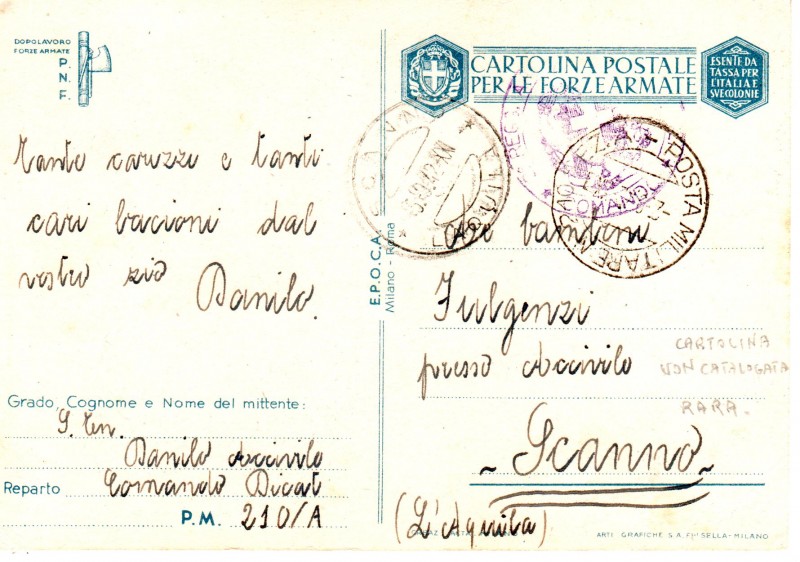 DOPOLAVORO
FORZE ARMATE
P.
N.
F.
CARTOLINA POSTALE
PER LE FORZE ARMATE
ESENTE DA
TASSA PER
L'ITALIA E
SVE COLONIE
POSTA MILITARE
Tante caruzzi e tanti
cari bacioni dal
vostro zio
Danilo.
E.P.O.C.A.
Milano - Roma
bambini
Fulgenzi
presso Accivilo
Scanno
(L'Aquila)
CARTOLINA
NON CATALOGATA
RARA.
Grado, Cognome e Nome del mittente:
S. Ten.
Danilo Accivilo
Reparto Comando Dicat
P.M. 210/A
ARTI GRAFICHE S.A. F.LLI SELLA-MILANO